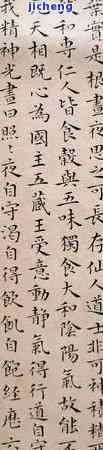 jicheng
葉實是根晝夜思之可長存仙人道士非可神積精
和專仁人皆食穀與五味獨食大和陰陽氣故能不
天相既心為國主五藏王受意動靜氣得行道自守
我精神光晝日照〻夜自守渴自得飲飢自飽經歷六